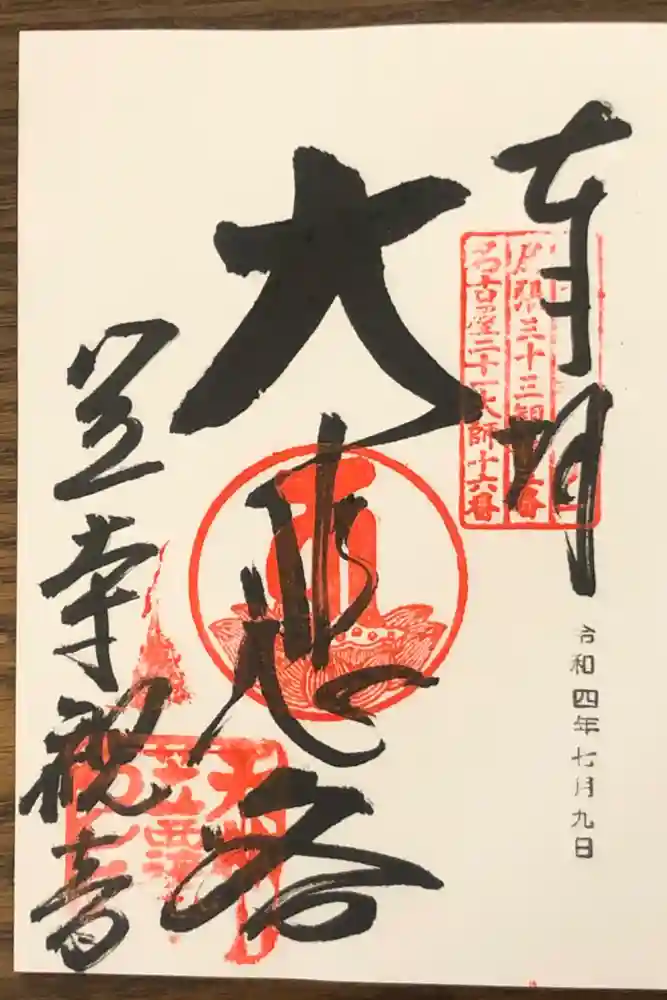 奉拝
尾張三十三観音六番
名古屋二十一大師十六番
令和四年七月九日
大悲客
笠寺観音